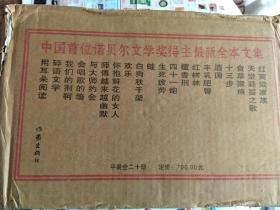 中国首位诺贝尔文学奖得主最新全本文集
红高粱家族
天堂蒜薹之歌
食草家族
十三步
酒国
丰乳肥臀
红树林
檀香刑
四十一炮
生死疲劳
蛙
白狗秋千架
欢乐
怀抱鲜花的女人
师傅越来越幽默
与大师约会
会唱歌的墙
我们的荆轲
碎语文学
用耳朵阅读
作家出版社
平装全二十册 定价:700.00元